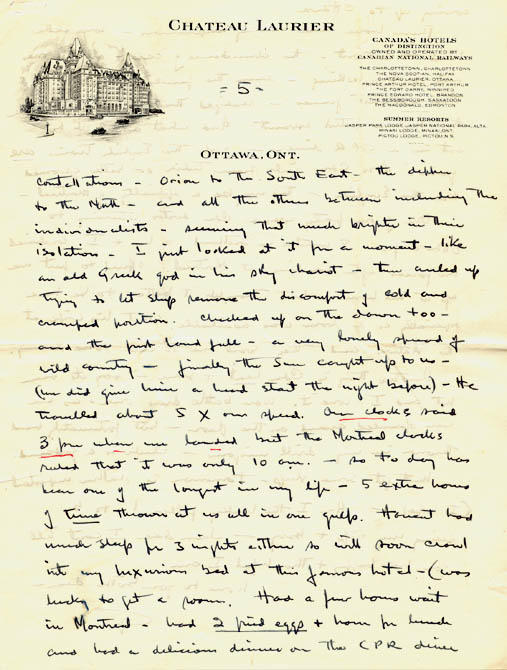 CHATEAU LAURIER
CANADA'S HOTELS
OF DISTINCTION
OWNED AND OPERATED BY
CANADIAN NATIONAL RAILWAYS
THE CHARLOTTETOWN, CHARLOTTETOWN
THE NOVA SCOTIAN, HALIFAX
CHATEAU LAURIER, OTTAWA
PRINCE ARTHUR HOTEL, PORT ARTHUR
THE FORT GARRY, WINNIPEG
PRINCE EDWARD HOTEL, BRANDON
THE BESSBOROUGH, SASKATOON
THE MACDONALD, EDMONTON
SUMMER RESORTS
JASPER PARK LODGE, JASPER NATIONAL PARK, ALTA.
MINAKI LODGE, MINAKI, ONT.
PICTOU LODGE, PICTOU N.S.
- 5 -
OTTAWA, ONT.
- Orion to the South East - the dipper
to the North - and all the others between including the
individualists - seeming that much brighter in their
isolation - I just looked at it for a moment - like
an old Greek god in his sky chariot - then curled up
trying to let sleep remove the discomfort of cold and
cramped position. Checked up on the dawn too -
and the first land fall - a very lonely spread of
wild country - finally the Sun caught up to us -
(we did give him a head start the night before) - He
travelled about 5 X our speed. Our clocks said
3 pm when we landed but the Montreal clocks
ruled that it was only 10 am. - so to day has
been one of the longest in my life - 5 extra hours
of time thrown at us all in one gulp. Havent had
much sleep for 3 nights either so will soon crawl
into my luxurious bed at this famous hotel - (was
lucky to get a room. Had a few hours wait
in Montreal - had 2 fried eggs + ham for lunch
and had a delicious dinner on the CPR diner